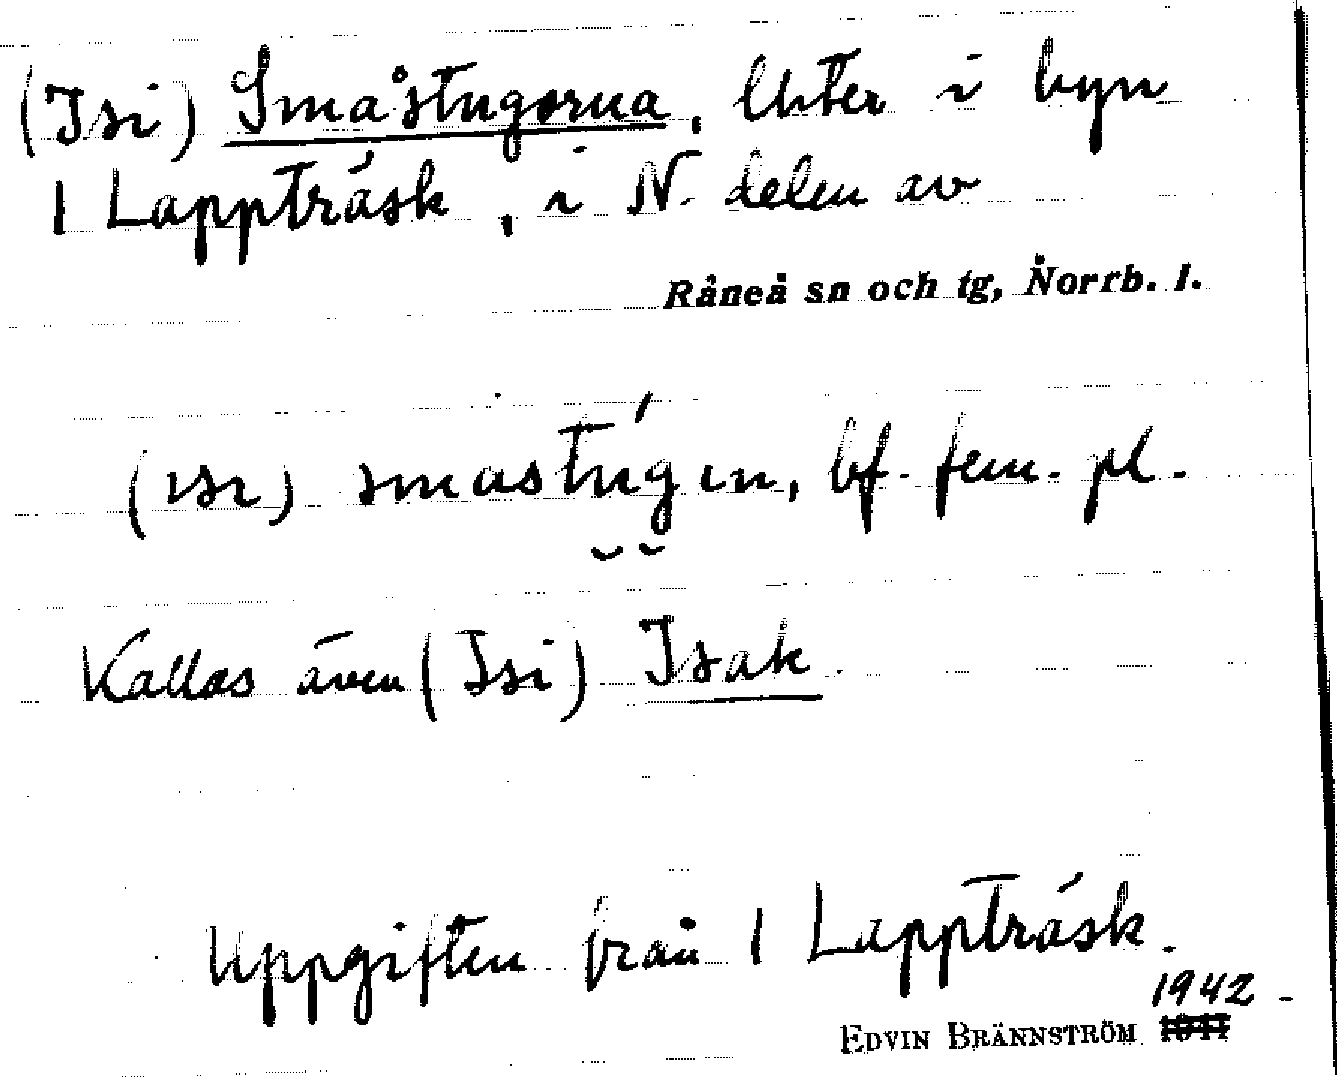 (Isi) Småstugorna, Uhter i byn
1 Lappträsk, i N. delen av
Råneå sn och tg, Norrb. l.
(ısı) smastúgın, bf. fem. pl.
Kallas även (Isi) Isak.
Uppgiften från 1 Lappträsk.
1942
EDVIN BRÄNNSTRÖM 1941